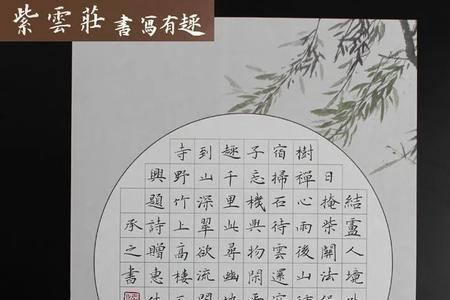 紫雲莊 書寫有趣
結廬人境
日掩柴關法侶
樹禪心雨後山
宿掃石待雲還
子忘機與物閑
趣千里此尋幽地
到山深翠欲流
寺野竹上高樓
興題詩贈惠休
承之書